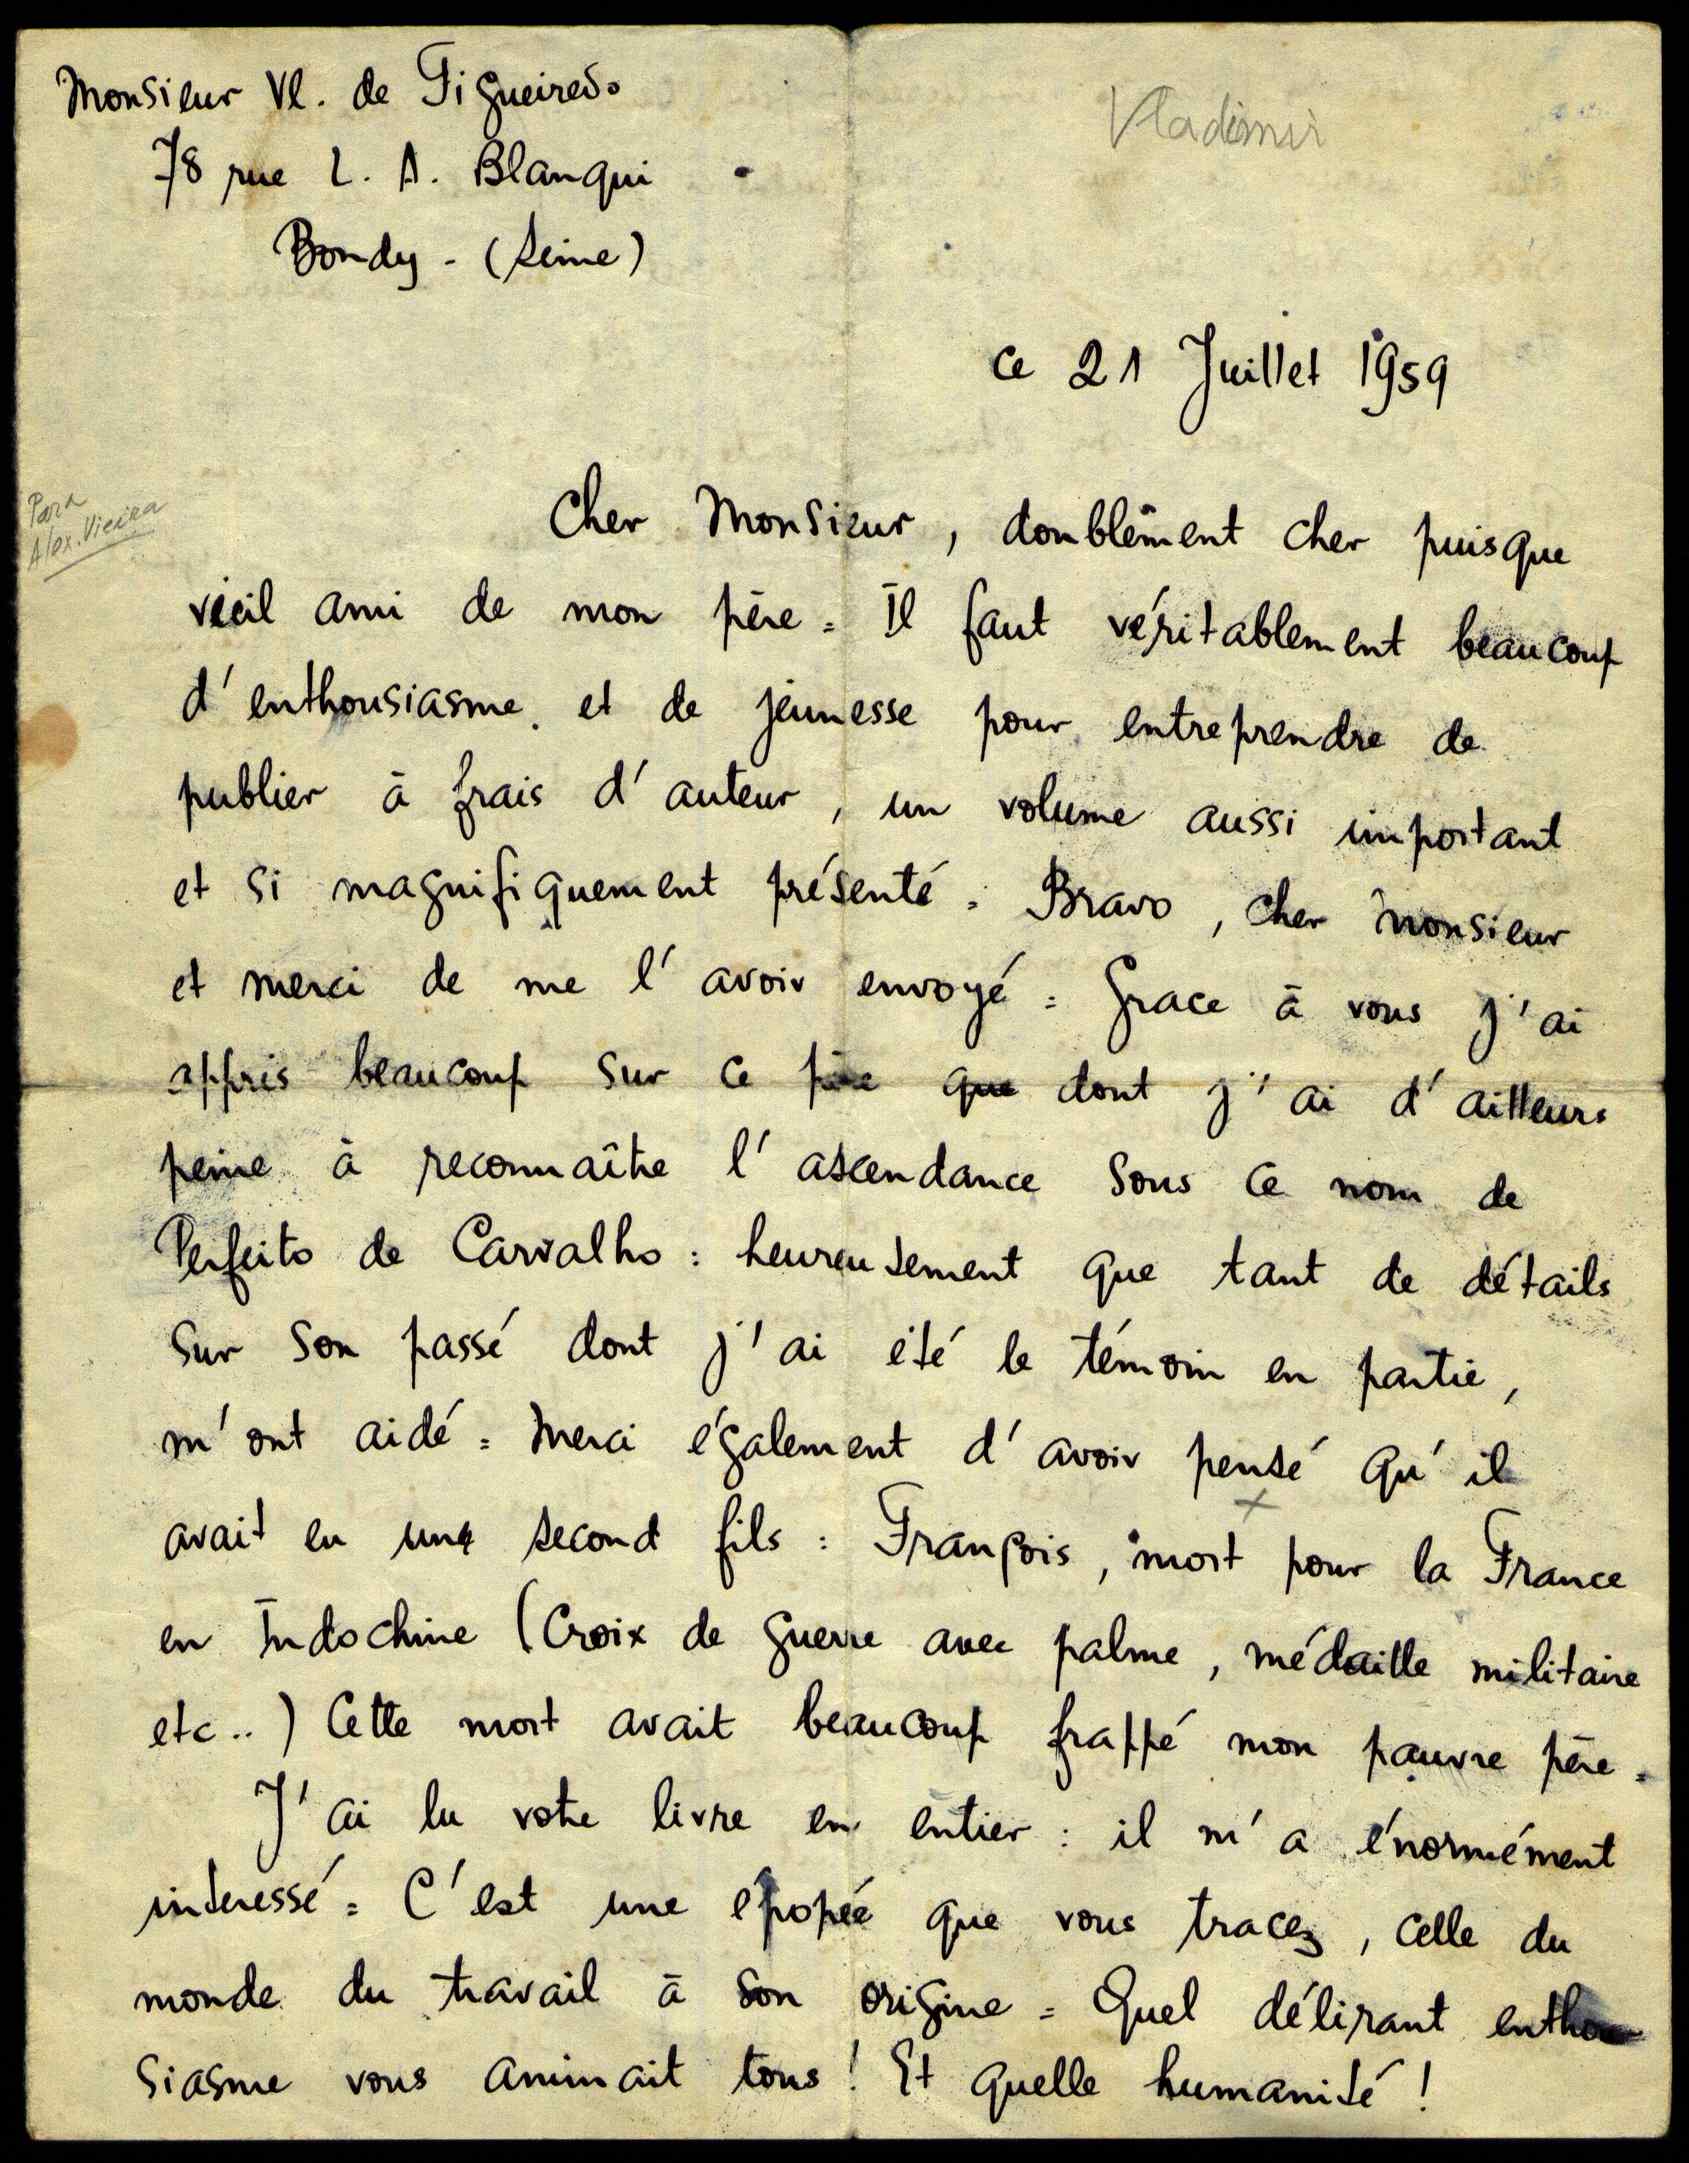 Monsieur Vl. de Figueiredo
Vladimir
78 rue L. A. Blanqui
Bondy - (Seine)
ce 21 Juillet 1959
Para
Alex. Vieira
Cher Monsieur, doublement cher puisque
vieil ami de mon père = Il faut véritablement beaucoup
d'enthousiasme et de jeunesse pour entreprendre de
publier à frais d'auteur, un volume aussi important
et si magnifiquement présenté = Bravo, cher monsieur
et merci de me l'avoir envoyé = Grace à vous j'ai
appris beaucoup sur ce père que dont j'ai d'ailleurs
peine à reconnaître l'ascendance sous ce nom de
Perfeito de Carvalho : heureusement que tant de détails
sur son passé dont j'ai été le témoin en partie,
m'ont aidé = Merci également d'avoir pensé qu'il
avait eu un second fils : François, mort pour la France
en Indochine (Croix de guerre avec palme, médaille militaire
etc..) Cette mort avait beaucoup frappé mon pauvre père =
J'ai lu votre livre en entier : il m'a énormément
interessé = C'est une épopée que vous tracez, celle du
monde du travail à son origine = Quel délirant enthou
siasme vous animait tous ! Et quelle humanité !